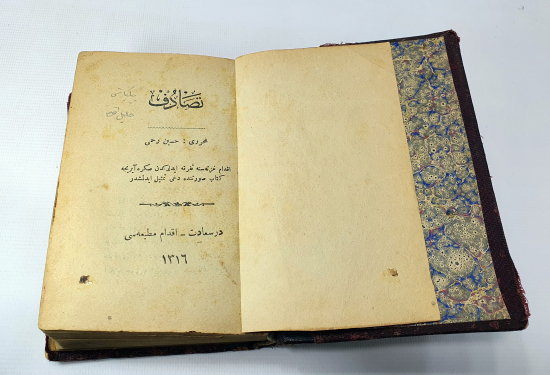 تصادف
محرری : حسین رحمی
اقدام غزته‌سنه تفرقه ایدلدكدن صكره آیریجه
كتاب صورتنده دخی تمثیل ایدلمشدر
درسعادت - اقدام مطبعه‌سی
١٣١٦